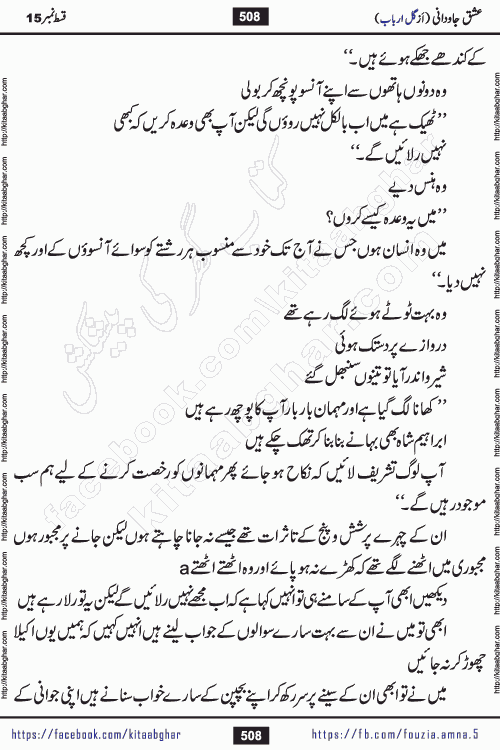 عشق جاودانی (از گل ارباب) 508 قسط نمبر 15
کے کندھے جھکے ہوئے ہیں۔‘‘
وہ دونوں ہاتھوں سے اپنے آنسو پونچھ کر بولی
’’ٹھیک ہے میں اب بالکل نہیں روؤں گی لیکن آپ بھی وعدہ کریں کہ کبھی
نہیں رلائیں گے۔‘‘
وہ ہنس دیے
’’میں یہ وعدہ کیسے کروں؟
میں وہ انسان ہوں جس نے آج تک خود سے منسوب ہر رشتے کو سوائے آنسوؤں کے اور کچھ
نہیں دیا۔‘‘
وہ بہت ٹوٹے ہوئے لگ رہے تھے
دروازے پر دستک ہوئی
شیرو اندر آیا تو تینوں سنبھل گئے
’’کھانا لگ گیا ہے اور مہمان بار بار آپ کا پوچھ رہے ہیں
ابراہیم شاہ بھی بہانے بنا بنا کر تھک چکے ہیں
آپ لوگ تشریف لائیں کہ نکاح ہو جائے پھر مہمانوں کو رخصت کرنے کے لیے ہم سب
موجود رہیں گے۔‘‘
ان کے چہرے پر شش و پنج کے تاثرات تھے جیسے نہ جانا چاہتے ہوں لیکن جانے پر مجبور ہوں
مجبوری میں اٹھنے لگے تھے کہ کھڑے نہ ہو پائے اور وہ اٹھتے اٹھتے a
دیکھیں ابھی آپ کے سامنے ہی تو انہیں کہا ہے کہ اب مجھے نہیں رلائیں گے لیکن یہ تو رلا رہے ہیں
ابھی تو میں نے ان سے بہت سارے سوالوں کے جواب لینے ہیں انہیں کہیں کہ ہمیں یوں اکیلا
چھوڑ کر نہ جائیں
میں نے تو ابھی ان کے سینے پر سر رکھ کر اپنے بچپن کے سارے خواب سنانے ہیں اپنی جوانی کے
https://facebook.com/kitaabghar 508 https://fb.com/fouzia.amna.5
http://kitaabghar.com
کتاب گھر کی پیشکش
facebook.com/kitaabghar
kitaabghar.com